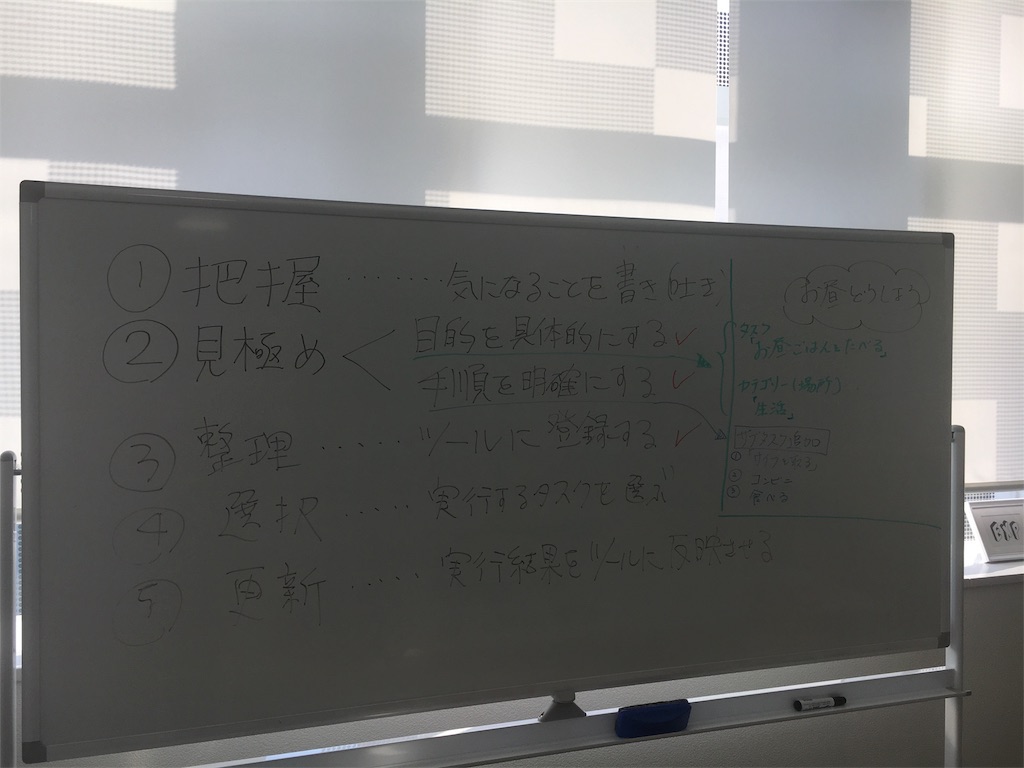 ① 把握 ・・・・・・ 気になることを書き(吐き)
② 見極め < 目的を具体的にする ✓
手順を明確にする ✓
③ 整理 ・・・・・ ツールに登録する ✓
④ 選択 ・・・・・ 実行するタスクを選ぶ
⑤ 更新 ・・・・・ 実行結果をツールに反映させる
お昼どうしよう
タスク
「お昼ごはんをたべる」
カテゴリー(場所)
「生活」
サブタスク追加
①
② コンビニ
③ 食べる